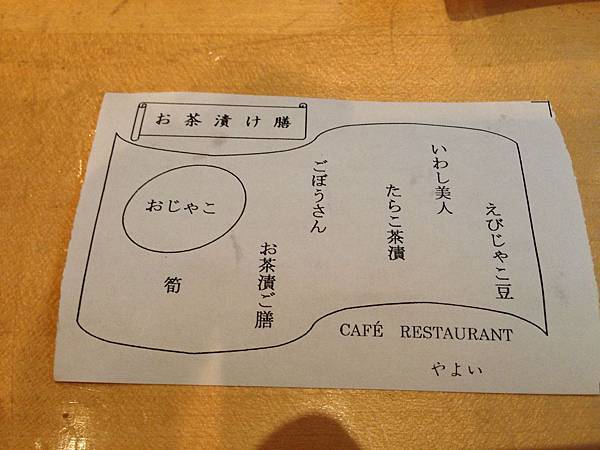 お茶漬け膳
えびじゃこ豆
いわし美人
たらこ茶漬
ごぼうさん
お茶漬ご膳
おじゃこ
筍
CAFÉ RESTAURANT
やよい